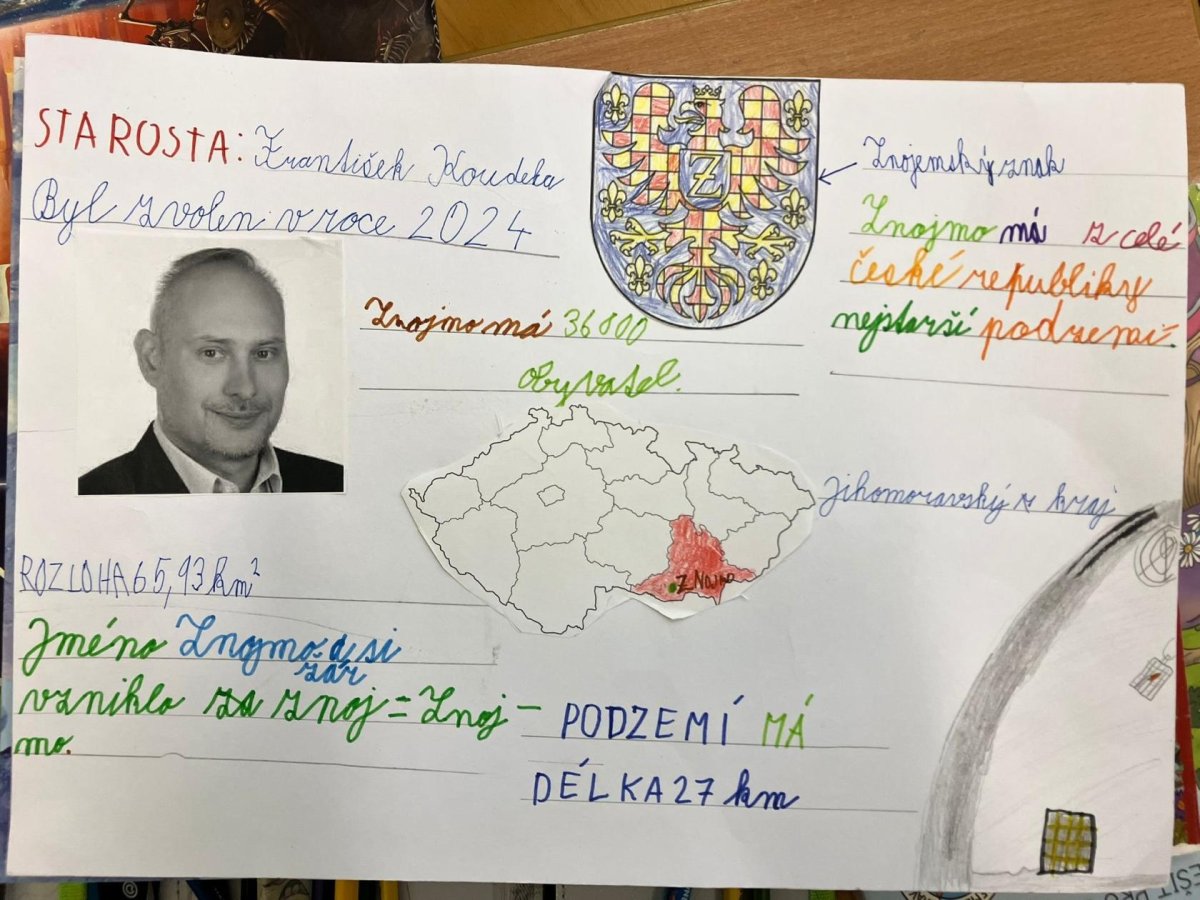 STAROSTA: František Koudela
Byl zvolen v roce 2024
Z
Znojemský znak
Znojmo má z celé
české republiky
nejstarší podzemí.
Znojmo má 36 000
obyvatel.
Jihomoravský kraj
Znojmo
ROZLOHA 65,93 km²
Jméno Znojmo a si
vzniklo za znoj = Znoj-
mo.
PODZEMÍ MÁ
DÉLKA 27 km
EŠIT PRO